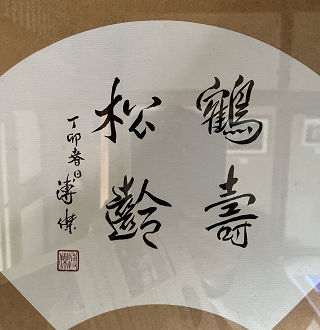 鶴壽
松齡
丁卯春日溥傑